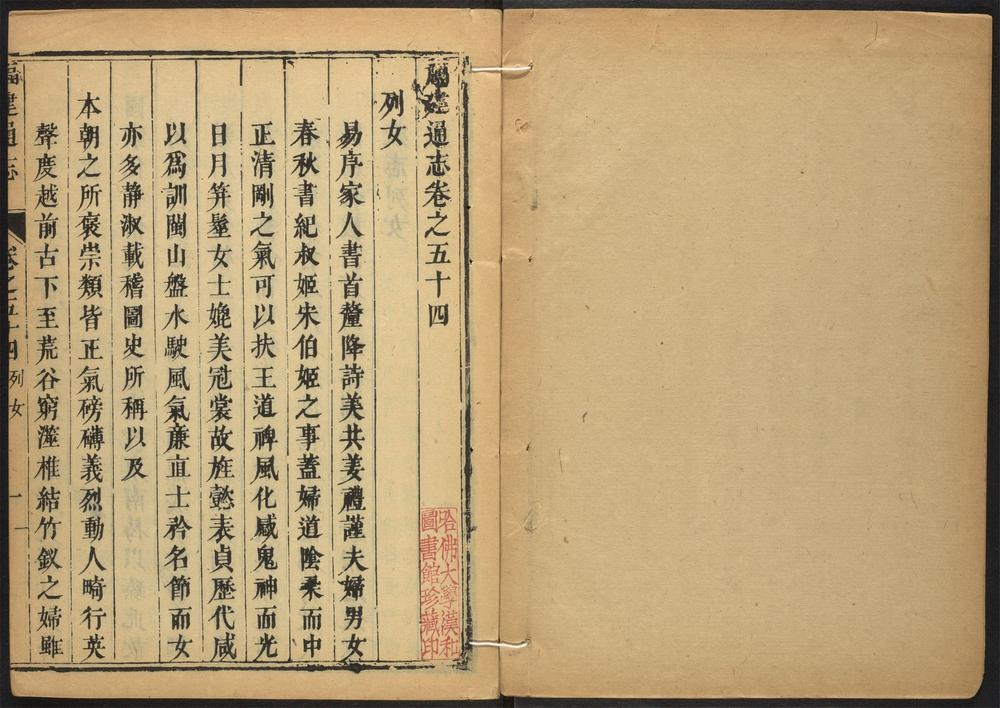 福建通志卷之五十四
列女
易序家人書首釐降詩美共姜禮謹夫婦男女
春秋書紀叔姬宋伯姬之事蓋婦道陰柔而中
正清剛之氣可以扶王道裨風化感鬼神而光
日月笄髽女士媲美冠裳故旌懿表貞歷代咸
以為訓閩山盤水駛風氣亷直士矜名節而女
亦多静淑載稽圖史所稱以及
本朝之所褒崇類皆正氣磅礡義烈動人畸行英
聲度越前古下至荒谷窮澨椎結竹釵之婦雖
福建通志 卷之五十四 列女 一
哈佛大學漢和
圖書館珍藏印